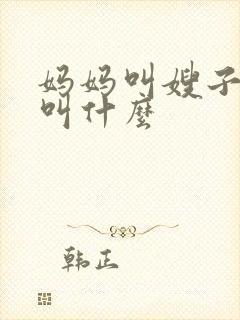 妈妈叫嫂子
叫什麽
韩正